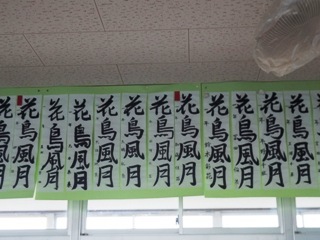 花鳥風月
花鳥風月
花鳥風月
花鳥風月
花鳥風月
花鳥風月
花鳥風月
花鳥風月
花鳥風月
花鳥風月
花鳥風月
花鳥風月